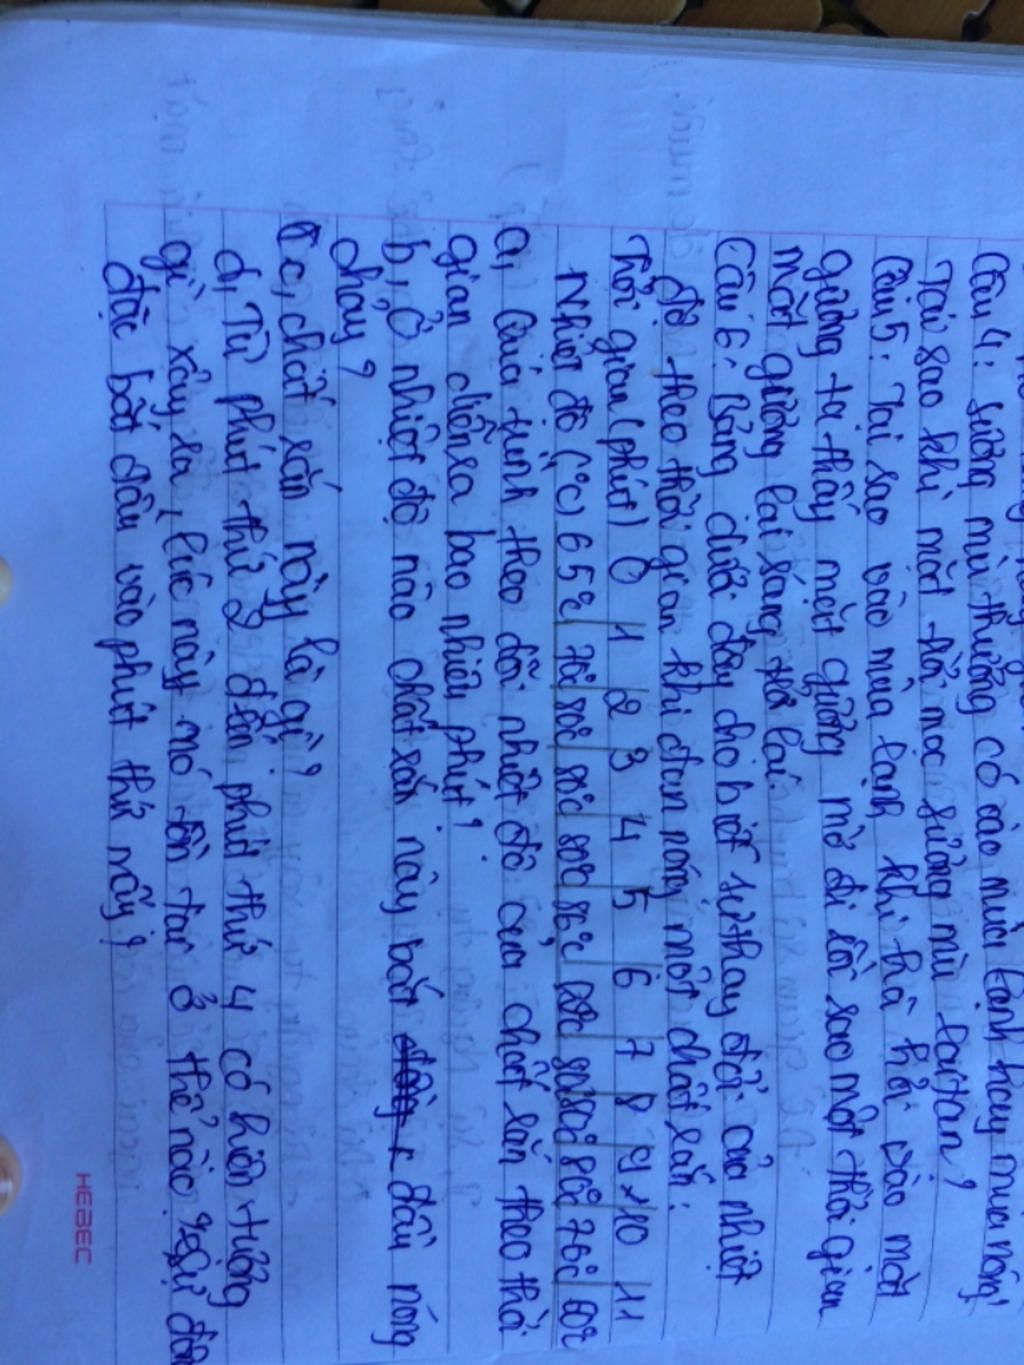 Câu 4: Sương mù thường có vào mùa lạnh hay mùa nóng?
Tại sao khi mặt trời mọc sương mù lại tan?
Câu 5: Tại sao vào mùa lạnh khi hà hơi vào mặt
gương ta thấy mặt gương mờ đi rồi sao một thời gian
mặt gương lại sáng trở lại.
Câu 6: Bảng dưới đây cho biết sự thay đổi của nhiệt
độ theo thời gian khi đun nóng một chất rắn:
Thời gian (phút) 0 1 2 3 4 5 6 7 8 9 10 11
Nhiệt độ (°C) 65°C 75°C 80°C 80°C 80°C 86°C 80°C 80°C 80°C 76°C 60°C
a, Quá trình theo dõi nhiệt độ của chất rắn theo thời
gian diễn ra bao nhiêu phút?
b, Ở nhiệt độ nào chất rắn này bắt đầu nóng
chảy?
c, chất rắn này là gì?
d, Từ phút thứ 2 đến phút thứ 4 có hiện tượng
gì xảy ra, lúc này nó tồn tại ở thể nào? Sự đông
đặc bắt đầu vào phút thứ mấy?
HEBEC